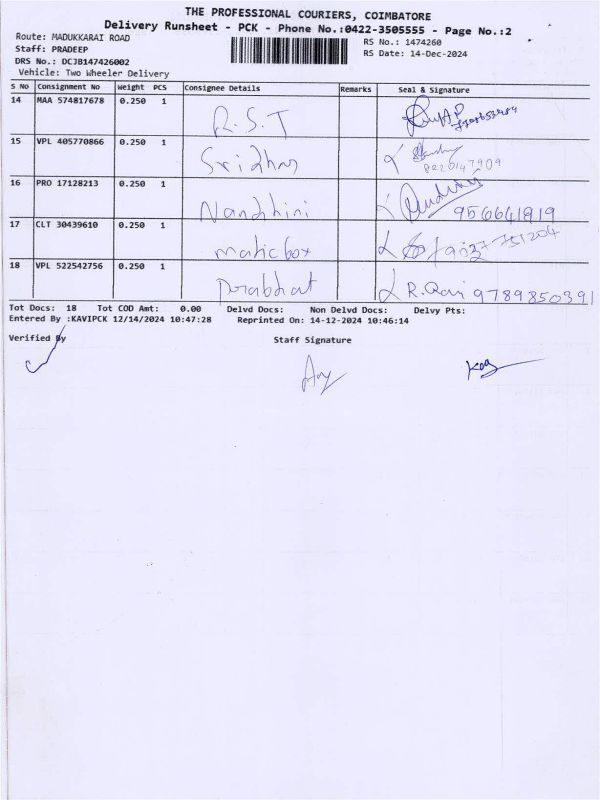 THE PROFESSIONAL COURIERS, COIMBATORE
Delivery Runsheet - PCK - Phone No.:0422-3505555 - Page No.:2
Route: MADUKKARAI ROAD RS No.: 1474260
Staff: PRADEEP RS Date: 14-Dec-2024
DRS No.: DCJB147426002
Vehicle: Two Wheeler Delivery
S No Consignment No Weight PCS Consignee Details Remarks Seal & Signature
14 MAA 574817678 0.250 1 R.S.T
15 VPL 405770866 0.250 1 Sridhar
8220147909
16 PRO 17128213 0.250 1 Nandhini
956641819
17 CLT 30439610 0.250 1 matic box
18 VPL 522542756 0.250 1 Prabhat R. Ravi 9789350391
Tot Docs: 18 Tot COD Amt: 0.00 Delvd Docs: Non Delvd Docs: Delvy Pts:
Entered By :KAVIPCK 12/14/2024 10:47:28 Reprinted On: 14-12-2024 10:46:14
Verified By Staff Signature